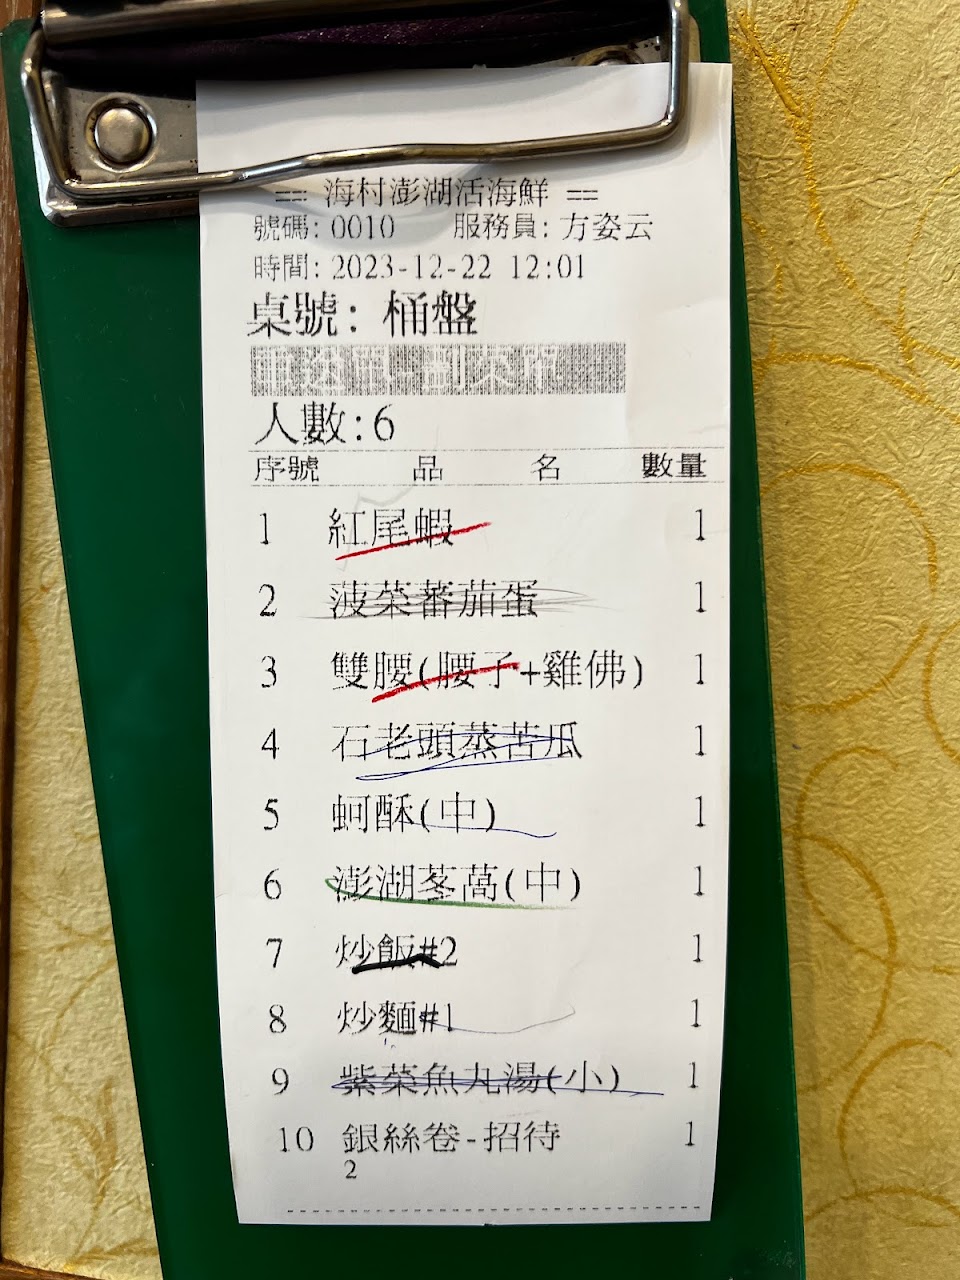 == 海村澎湖活海鮮 ==
號碼: 0010 服務員: 方姿云
時間: 2023-12-22 12:01
桌號: 桶盤
重送單 劃菜單
人數:6
序號 品 名 數量
1 紅尾蝦 1
2 菠菜蕃茄蛋 1
3 雙腰(腰子+雞佛) 1
4 石老頭蒸苦瓜 1
5 蚵酥(中) 1
6 澎湖苳萵(中) 1
7 炒飯#2 1
8 炒麵#1 1
9 紫菜魚丸湯(小) 1
10 銀絲卷-招待 1
2